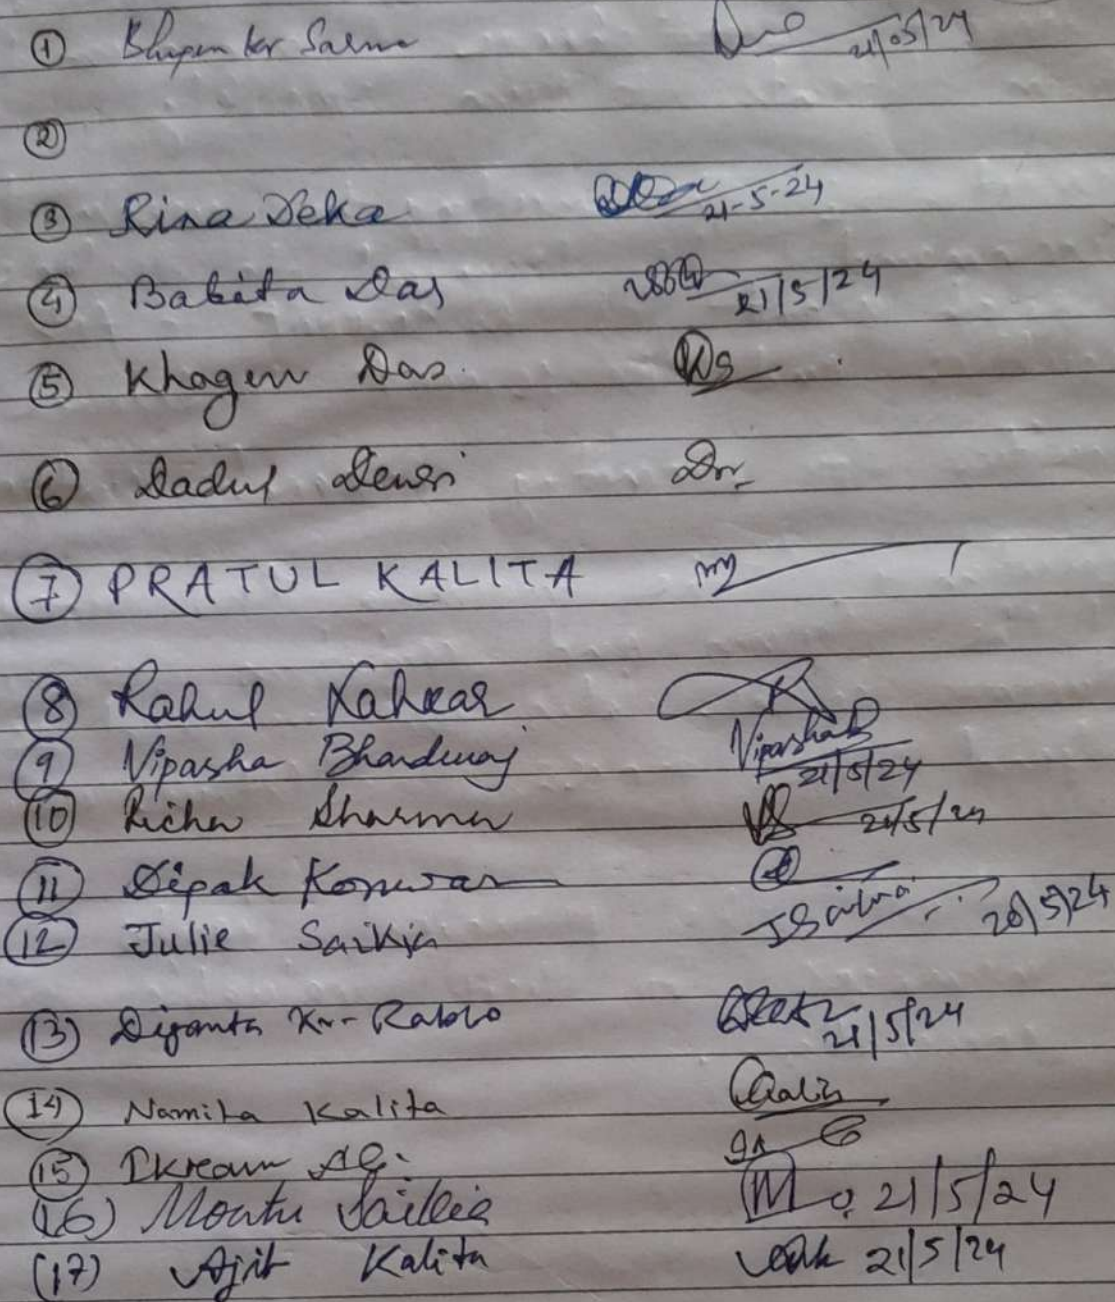 ① Bhupen kr Sarma 21/05/24
②
③ Rina Deka 21-5-24
④ Babita Das 21/5/24
⑤ Khagen Das.
⑥ Dadul
⑦ PRATUL KALITA
⑧ Rahul
⑨ Vipasha Bhardwaj VipashaB
21/5/24
⑩ Richa Sharma 21/5/24
⑪ Dipak Konwar
⑫ Julie Saikia 20/5/24
⑬ Diganta Kr. 21/5/24
⑭ Namita Kalita
⑮ Ikream Ali.
(16) Montu Saikia 21/5/24
(17) Ajit Kalita 21/5/24